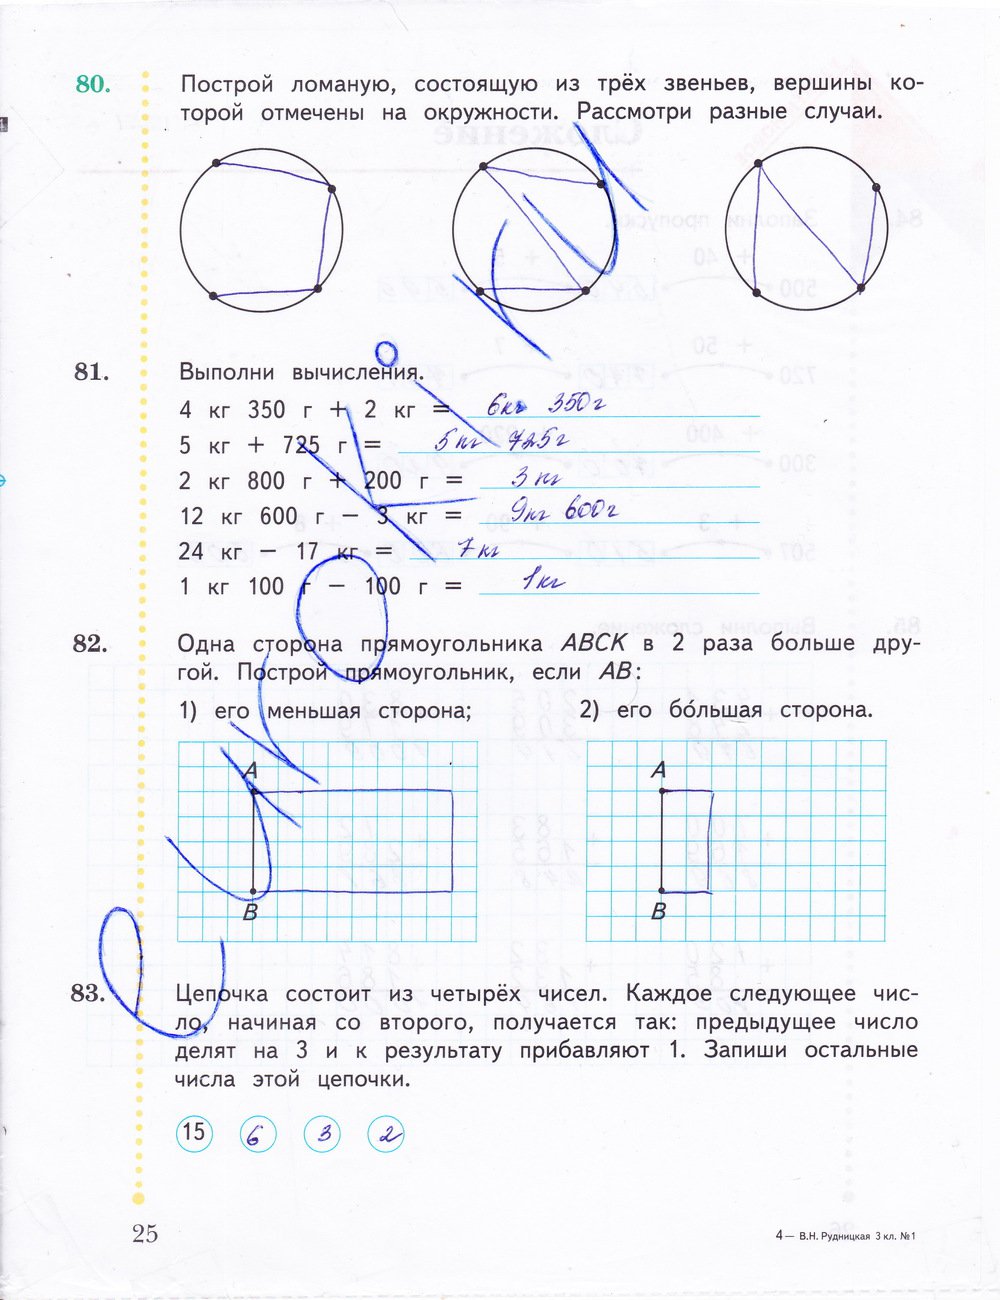 80. Построй ломаную, состоящую из трёх звеньев, вершины ко-
торой отмечены на окружности. Рассмотри разные случаи.
81. Выполни вычисления.
4 кг 350 г + 2 кг = 6кг 350г
5 кг + 725 г = 5 кг 725г
2 кг 800 г + 200 г = 3 кг
12 кг 600 г − 3 кг = 9кг 600г
24 кг − 17 кг = 7 кг
1 кг 100 г − 100 г = 1кг
82. Одна сторона прямоугольника ABCK в 2 раза больше дру-
гой. Построй прямоугольник, если AB:
1) его меньшая сторона; 2) его бо́льшая сторона.
A A
B B
83. Цепочка состоит из четырёх чисел. Каждое следующее чис-
ло, начиная со второго, получается так: предыдущее число
делят на 3 и к результату прибавляют 1. Запиши остальные
числа этой цепочки.
15 6 3 2
25 4 — В.Н. Рудницкая 3 кл. №1